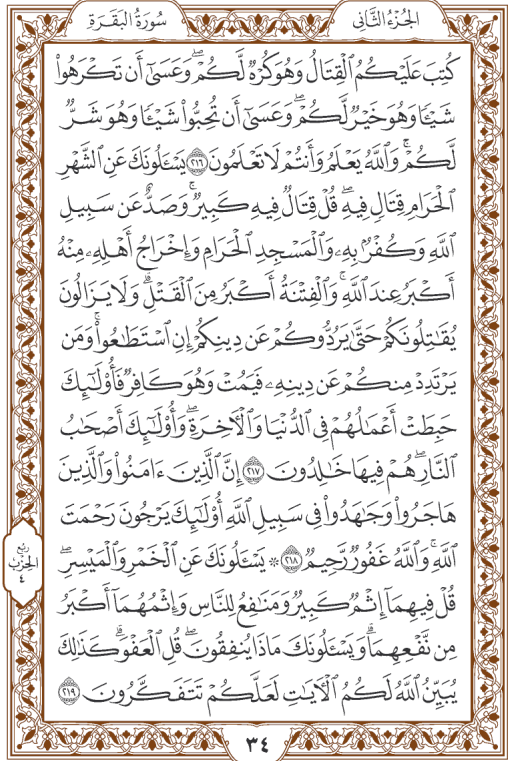 الجُزْءُ الثَّانِي
سُورَةُ البَقَرَةِ
كُتِبَ عَلَيْكُمُ ٱلْقِتَالُ وَهُوَ كُرْهٌ لَّكُمْ ۖ وَعَسَىٰٓ أَن تَكْرَهُوا۟
شَيْـًٔا وَهُوَ خَيْرٌ لَّكُمْ ۖ وَعَسَىٰٓ أَن تُحِبُّوا۟ شَيْـًٔا وَهُوَ شَرٌّ
لَّكُمْ ۗ وَٱللَّهُ يَعْلَمُ وَأَنتُمْ لَا تَعْلَمُونَ ٢١٦ يَسْـَٔلُونَكَ عَنِ ٱلشَّهْرِ
ٱلْحَرَامِ قِتَالٍ فِيهِ ۖ قُلْ قِتَالٌ فِيهِ كَبِيرٌ ۖ وَصَدٌّ عَن سَبِيلِ
ٱللَّهِ وَكُفْرٌۢ بِهِۦ وَٱلْمَسْجِدِ ٱلْحَرَامِ وَإِخْرَاجُ أَهْلِهِۦ مِنْهُ
أَكْبَرُ عِندَ ٱللَّهِ ۚ وَٱلْفِتْنَةُ أَكْبَرُ مِنَ ٱلْقَتْلِ ۗ وَلَا يَزَالُونَ
يُقَـٰتِلُونَكُمْ حَتَّىٰ يَرُدُّوكُمْ عَن دِينِكُمْ إِنِ ٱسْتَطَـٰعُوا۟ ۚ وَمَن
يَرْتَدِدْ مِنكُمْ عَن دِينِهِۦ فَيَمُتْ وَهُوَ كَافِرٌ فَأُو۟لَـٰٓئِكَ
حَبِطَتْ أَعْمَـٰلُهُمْ فِى ٱلدُّنْيَا وَٱلْـَٔاخِرَةِ ۖ وَأُو۟لَـٰٓئِكَ أَصْحَـٰبُ
ٱلنَّارِ ۖ هُمْ فِيهَا خَـٰلِدُونَ ٢١٧ إِنَّ ٱلَّذِينَ ءَامَنُوا۟ وَٱلَّذِينَ
هَاجَرُوا۟ وَجَـٰهَدُوا۟ فِى سَبِيلِ ٱللَّهِ أُو۟لَـٰٓئِكَ يَرْجُونَ رَحْمَتَ
ٱللَّهِ ۚ وَٱللَّهُ غَفُورٌ رَّحِيمٌ ٢١٨ ۞ يَسْـَٔلُونَكَ عَنِ ٱلْخَمْرِ وَٱلْمَيْسِرِ ۖ
قُلْ فِيهِمَآ إِثْمٌ كَبِيرٌ وَمَنَـٰفِعُ لِلنَّاسِ وَإِثْمُهُمَآ أَكْبَرُ
مِن نَّفْعِهِمَا ۗ وَيَسْـَٔلُونَكَ مَاذَا يُنفِقُونَ ۖ قُلِ ٱلْعَفْوَ ۗ كَذَٰلِكَ
يُبَيِّنُ ٱللَّهُ لَكُمُ ٱلْـَٔايَـٰتِ لَعَلَّكُمْ تَتَفَكَّرُونَ ٢١٩
ربع
الحِزْب
٤
٣٤